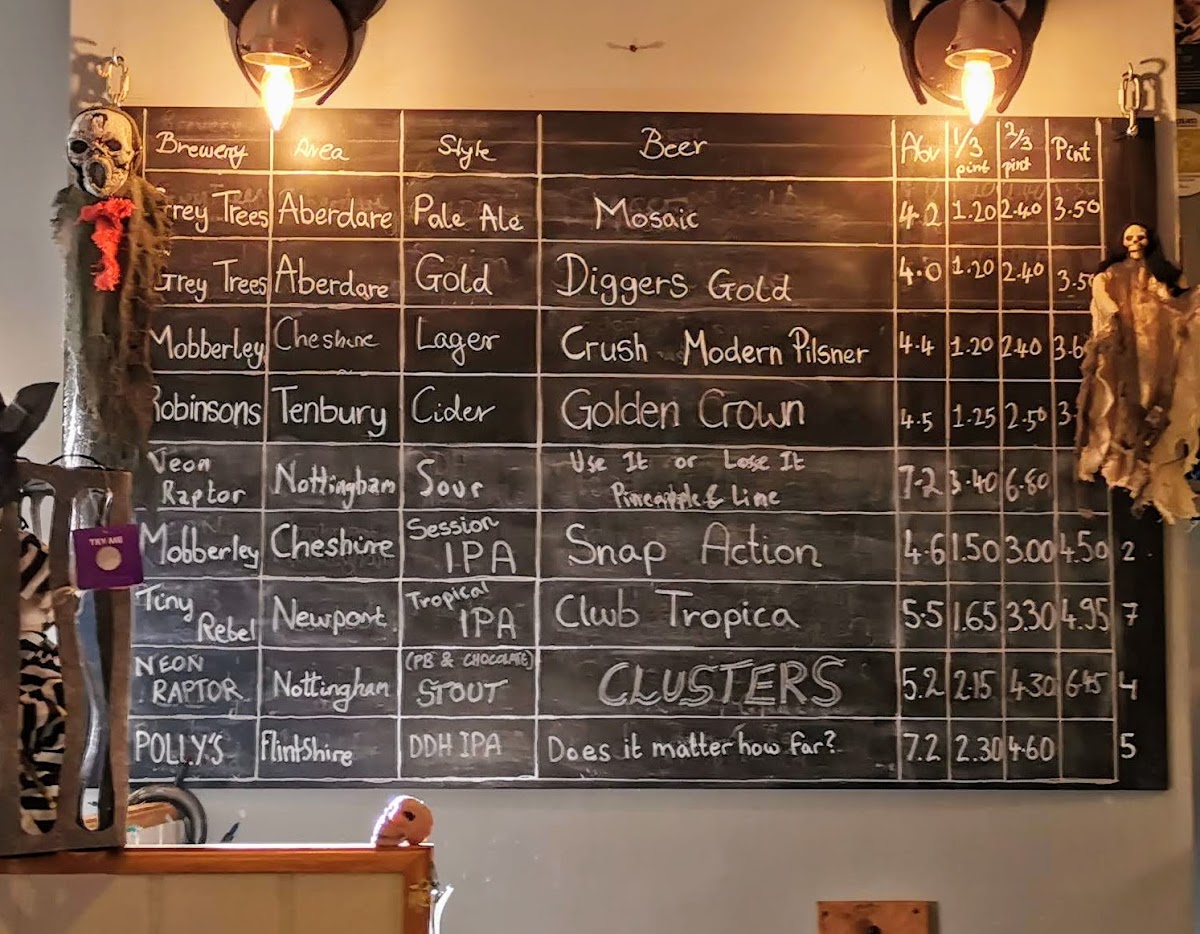 Brewery Area Style Beer Abv 1/3 pint 2/3 pint Pint
Grey Trees Aberdare Pale Ale Mosaic 4.2 1.20 2.40 3.50
Grey Trees Aberdare Gold Diggers Gold 4.0 1.20 2.40 3.50
Mobberley Cheshire Lager Crush Modern Pilsner 4.4 1.20 2.40
Robinsons Tenbury Cider Golden Crown 4.5 1.25 2.50
Neon Raptor Nottingham Sour Use It or Lose It Pineapple & Lime 7.2 3.40 6.80
Mobberley Cheshire Session IPA Snap Action 4.6 1.50 3.00 4.50 2
Tiny Rebel Newport Tropical IPA Clwb Tropica 5.5 1.65 3.30 4.95 7
NEON RAPTOR Nottingham (PB & CHOCOLATE) STOUT CLUSTERS 5.2 2.15 4.30 6.45 4
POLLY'S Flintshire DDH IPA Does it matter how far? 7.2 2.30 4.60 5
TRY ME